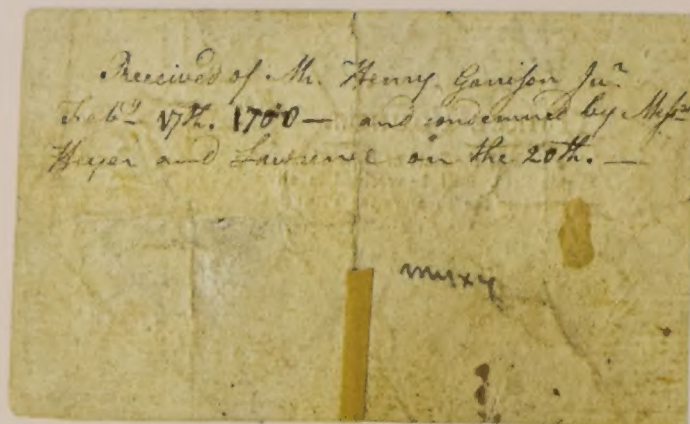 Received of Mr. Henry Garrison Junr.
Feby. 17th. 1780 — and condemned by Messrs.
Heyer and Lawrence on the 20th. —